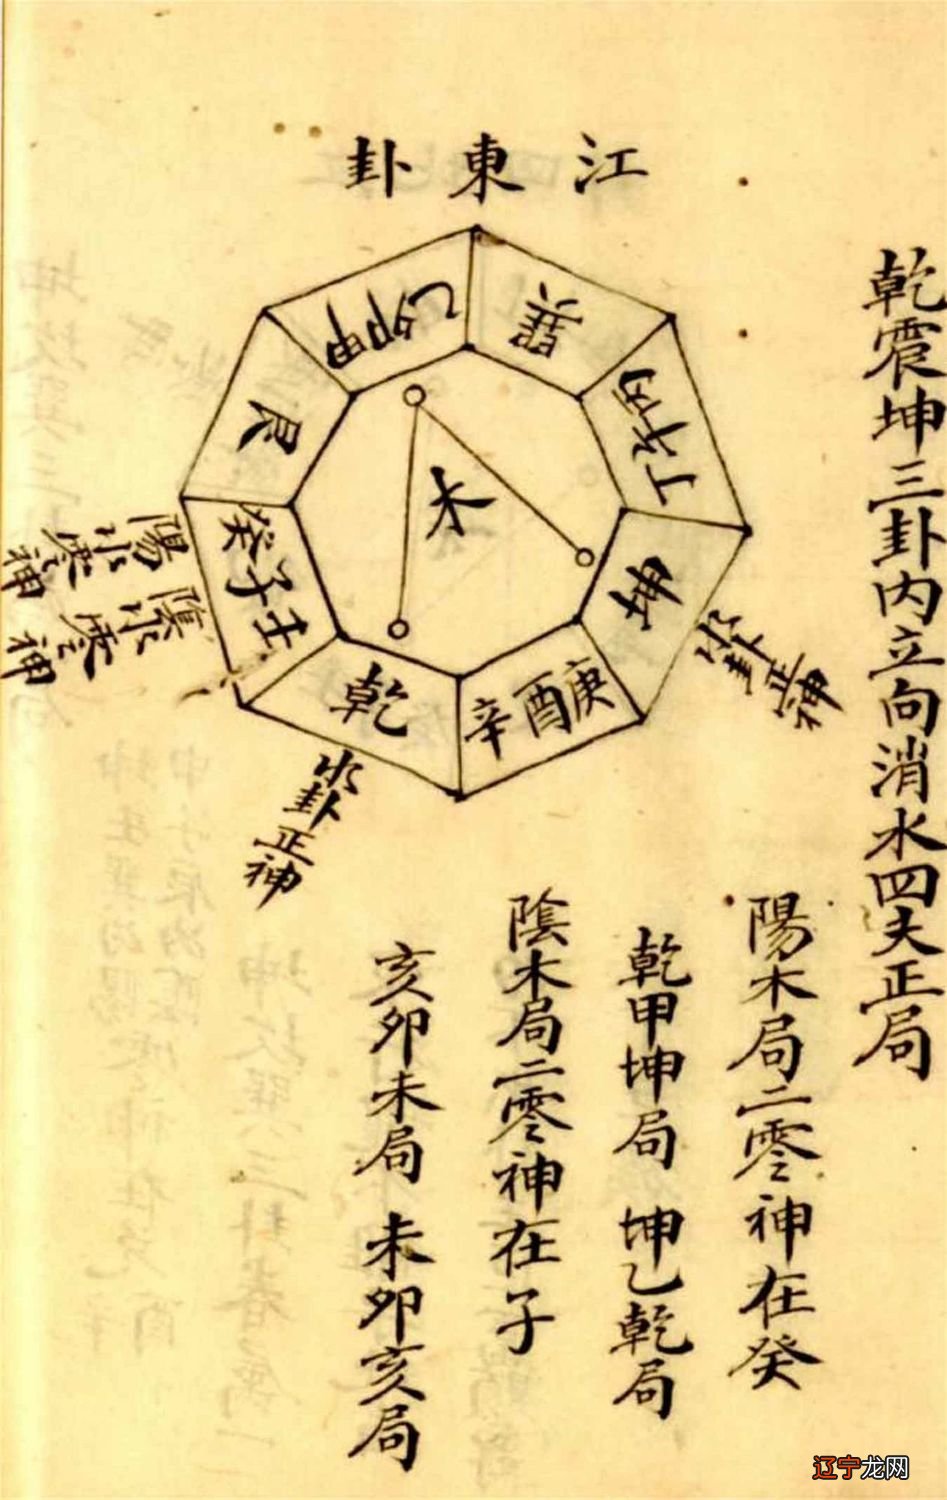 江東卦
乾震坤三卦内立向消水四大正局
陽木局二零神在癸
乾甲坤局 坤乙乾局
陰木局二零神在子
亥卯未局 未卯亥局
巽
丙午丁
坤
庚酉辛
乾
壬子癸
艮
甲卯乙
木
水卦正神
水卦正神
陰水零神
陽水零神
辽宁龙网